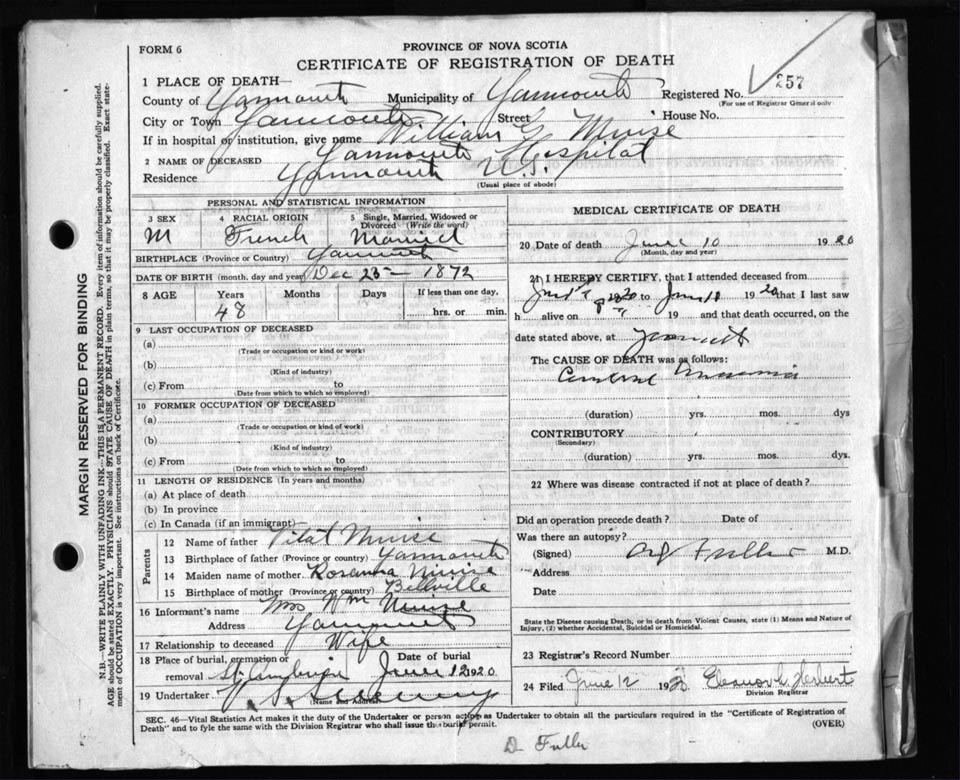 FORM 6
PROVINCE OF NOVA SCOTIA
CERTIFICATE OF REGISTRATION OF DEATH
1 PLACE OF DEATH—
County of Yarmouth Municipality of Yarmouth Registered No. 257
(For use of Registrar General only
City or Town Yarmouth Street House No.
If in hospital or institution, give name William G. Muise
2 NAME OF DECEASED Yarmouth Hospital
Residence Yarmouth N.S.
(Usual place of abode)
PERSONAL AND STATISTICAL INFORMATION
3 SEX M
4 RACIAL ORIGIN French
5 Single, Married, Widowed or Divorced (Write the word) Married
BIRTHPLACE (Province or Country) Yarmouth
DATE OF BIRTH (month, day and year) Dec 25 — 1872
8 AGE Years 48 Months Days If less than one day, hrs. or min.
9 LAST OCCUPATION OF DECEASED
(a)
(Trade or occupation or kind or work)
(b)
(Kind of industry)
(c) From to
(Date from which to which so employed)
10 FORMER OCCUPATION OF DECEASED
(a)
(Trade or occupation or kind or work)
(b)
(Kind of industry)
(c) From to
(Date from which to which so employed)
11 LENGTH OF RESIDENCE (In years and months)
(a) At place of death
(b) In province
(c) In Canada (if an immigrant)
Parents
12 Name of father Vital Muise
13 Birthplace of father (Province or country) Yarmouth
14 Maiden name of mother Rosanna Muise
15 Birthplace of mother (Province or country) Bellville
16 Informant's name Mrs Wm Muise
Address Yarmouth
17 Relationship to deceased Wife
18 Place of burial, cremation or removal St. Ambrose Date of burial June 12 1920
19 Undertaker
(Name and Address)
MEDICAL CERTIFICATE OF DEATH
20 Date of death June 10 1920
(Month, day and year)
21 I HEREBY CERTIFY, that I attended deceased from
1920 to June 10 1920 that I last saw
h alive on 19 and that death occurred, on the
date stated above, at Yarmouth
The CAUSE OF DEATH was as follows:
(duration) yrs. mos. dys
CONTRIBUTORY
(Secondary)
(duration) yrs. mos. dys.
22 Where was disease contracted if not at place of death?
Did an operation precede death? Date of
Was there an autopsy?
(Signed) Fuller M.D.
Address
Date
State the Disease causing Death, or in death from Violent Causes, state (1) Means and Nature of
Injury, (2) whether Accidental, Suicidal or Homicidal.
23 Registrar's Record Number
24 Filed June 12 1920 Eleanor L. Herbert
Division Registrar
SEC. 46—Vital Statistics Act makes it the duty of the Undertaker or person acting as Undertaker to obtain all the particulars required in the "Certificate of Registration of
Death" and to fyle the same with the Division Registrar who shall issue the burial permit. (OVER)
D Fuller
MARGIN RESERVED FOR BINDING
N.B.—WRITE PLAINLY WITH UNFADING INK—THIS IS A PERMANENT RECORD. Every item of information should be carefully supplied.
AGE should be stated EXACTLY. PHYSICIANS should STATE CAUSE OF DEATH in plain terms, so that it may be properly classified. Exact state-
ment of OCCUPATION is very important. See instructions on back of Certificate.